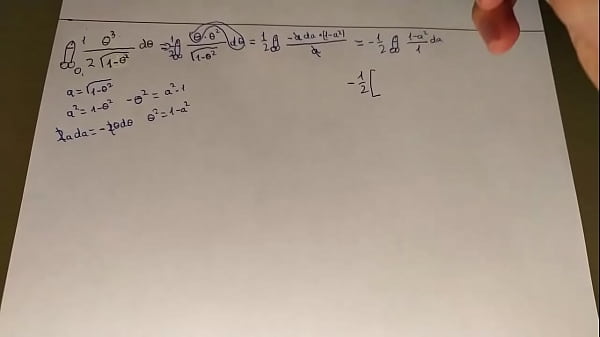 ∫₀¹ θ³ / (2√(1-θ²)) dθ = ½∫ (θ·θ² / √(1-θ²)) dθ = ½∫ (-a da·(1-a²)) / a = -½∫ (1-a²)/1 da
a = √(1-θ²)
-½[
a² = 1-θ² -θ² = a²-1
2ada = -2θdθ θ² = 1-a²